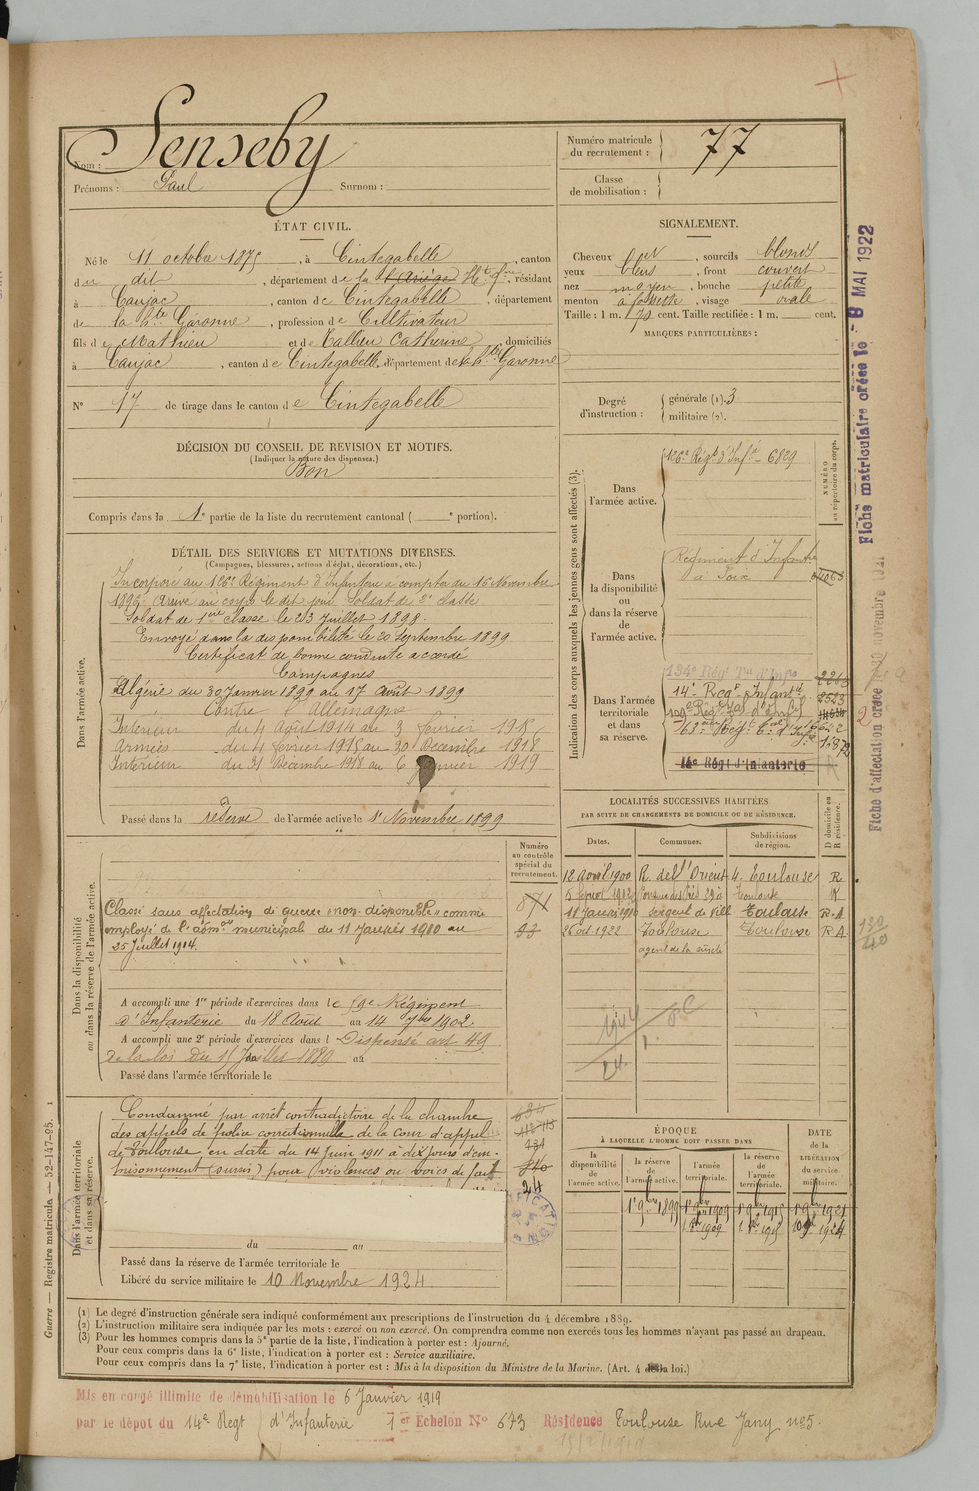 Nom : Senseby
Prénoms : Paul Surnom :
Numéro matricule du recrutement : 77
Classe de mobilisation :
ÉTAT CIVIL.
Né le 11 octobre 1875, à Cintegabelle, canton
du dit, département de la l'Ariège Hte Gne, résidant
à Caujac, canton de Cintegabelle, département
de la hte Garonne, profession de Cultivateur
fils de Mathieu et de Tallieu Catherine, domiciliés
à Caujac, canton de Cintegabelle, département de la hte Garonne
N° 17 de tirage dans le canton de Cintegabelle
SIGNALEMENT.
Cheveux , sourcils blonds
yeux bleus, front couvert
nez moyen, bouche petite
menton à fossette, visage ovale
Taille : 1 m. 70 cent. Taille rectifiée : 1 m. cent.
MARQUES PARTICULIÈRES :
Degré d'instruction : générale (1). 3
militaire (2).
DÉCISION DU CONSEIL DE REVISION ET MOTIFS.
(Indiquer la nature des dispenses.)
Bon
Compris dans la 1e partie de la liste du recrutement cantonal ( e portion).
DÉTAIL DES SERVICES ET MUTATIONS DIVERSES.
(Campagnes, blessures, actions d'éclat, décorations, etc.)
Dans l'armée active.
Incorporé au 126e Régiment d'Infanterie à compter du 16 Novembre
1896. Arrivé au corps le dit jour. Soldat de 2e classe
Soldat de 1ère classe le 23 Juillet 1898.
Envoyé dans la disponibilité le 20 Septembre 1899
Certificat de bonne conduite accordé
Campagnes
Algérie du 30 Janvier 1899 au 17 Août 1899
Contre l'Allemagne
Intérieur du 4 Août 1914 au 3 février 1915
Armées du 4 février 1915 au 30 Décembre 1918
Intérieur du 31 Décembre 1918 au 6 Janvier 1919
Passé dans la réserve de l'armée active le 1er Novembre 1899
Indication des corps auxquels les jeunes gens sont affectés (3).
NUMÉRO au répertoire du corps.
Dans l'armée active.
126e Régt d'Infie 6829
Dans la disponibilité ou dans la réserve de l'armée active.
Régiment d'Infanterie
à Foix
Dans l'armée territoriale et dans sa réserve.
134e Régt Tal d'Infie
14e Regt Infanterie 2523
14e Régt d'Infanterie
LOCALITÉS SUCCESSIVES HABITÉES
PAR SUITE DE CHANGEMENTS DE DOMICILE OU DE RÉSIDENCE.
Dates. Communes. Subdivisions de région. D domicile ou R résidence.
12 avril 1900 R. de l'Orient 4. Toulouse R
5 février 1912 Toulouse R
11 Janvier 1910 Sergent de Vill Toulouse R.A
26 oct 1922 Toulouse Toulouse R A
agent de la sûreté
Dans la disponibilité ou dans la réserve de l'armée active.
Numéro au contrôle spécial du recrutement.
871
93
Classé sans affectation de guerre (non-disponible) comme
employé de l'admon municipal du 11 Janvier 1910 au
25 Juillet 1914.
A accompli une 1re période d'exercices dans le 59e Régiment
d'Infanterie du 18 Août au 14 7bre 1902.
A accompli une 2e période d'exercices dans l Dispensé art 49
de la loi du 15 Juillet 1889 au
Passé dans l'armée territoriale le
Dans l'armée territoriale et dans sa réserve.
Condamné par arrêt contradictoire de la chambre
des appels de police correctionnelle de la Cour d'appel
de Toulouse en date du 14 Juin 1911 à dix jours d'em-
prisonnement (sursis) pour (violences ou voies de fait
24
du au
Passé dans la réserve de l'armée territoriale le
Libéré du service militaire le 10 Novembre 1924
ÉPOQUE
À LAQUELLE L'HOMME DOIT PASSER DANS
la disponibilité de l'armée active. la réserve de l'armée active. l'armée territoriale. la réserve de l'armée territoriale. DATE de la LIBÉRATION du service militaire.
1er 9bre 1899 1er 9bre 1909 1er 9bre 1915 1er 9bre 1921
(1) Le degré d'instruction générale sera indiqué conformément aux prescriptions de l'instruction du 4 décembre 1889.
(2) L'instruction militaire sera indiquée par les mots : exercé ou non exercé. On comprendra comme non exercés tous les hommes n'ayant pas passé au drapeau.
(3) Pour les hommes compris dans la 5e partie de la liste, l'indication à porter est : Ajourné.
Pour ceux compris dans la 6e liste, l'indication à porter est : Service auxiliaire.
Pour ceux compris dans la 7e liste, l'indication à porter est : Mis à la disposition du Ministre de la Marine. (Art. 4 de la loi.)
Mis en congé illimité de démobilisation le 6 Janvier 1919
par le dépôt du 14e Regt d'Infanterie 1er Echelon N° 673 Résidence Toulouse Rue Jany n°5.
Guerre — Registre matricule — 52-147-95.
Fiche matriculaire créée le - 8 MAI 1922
Fiche d'affectation créée novembre 1921
130
40